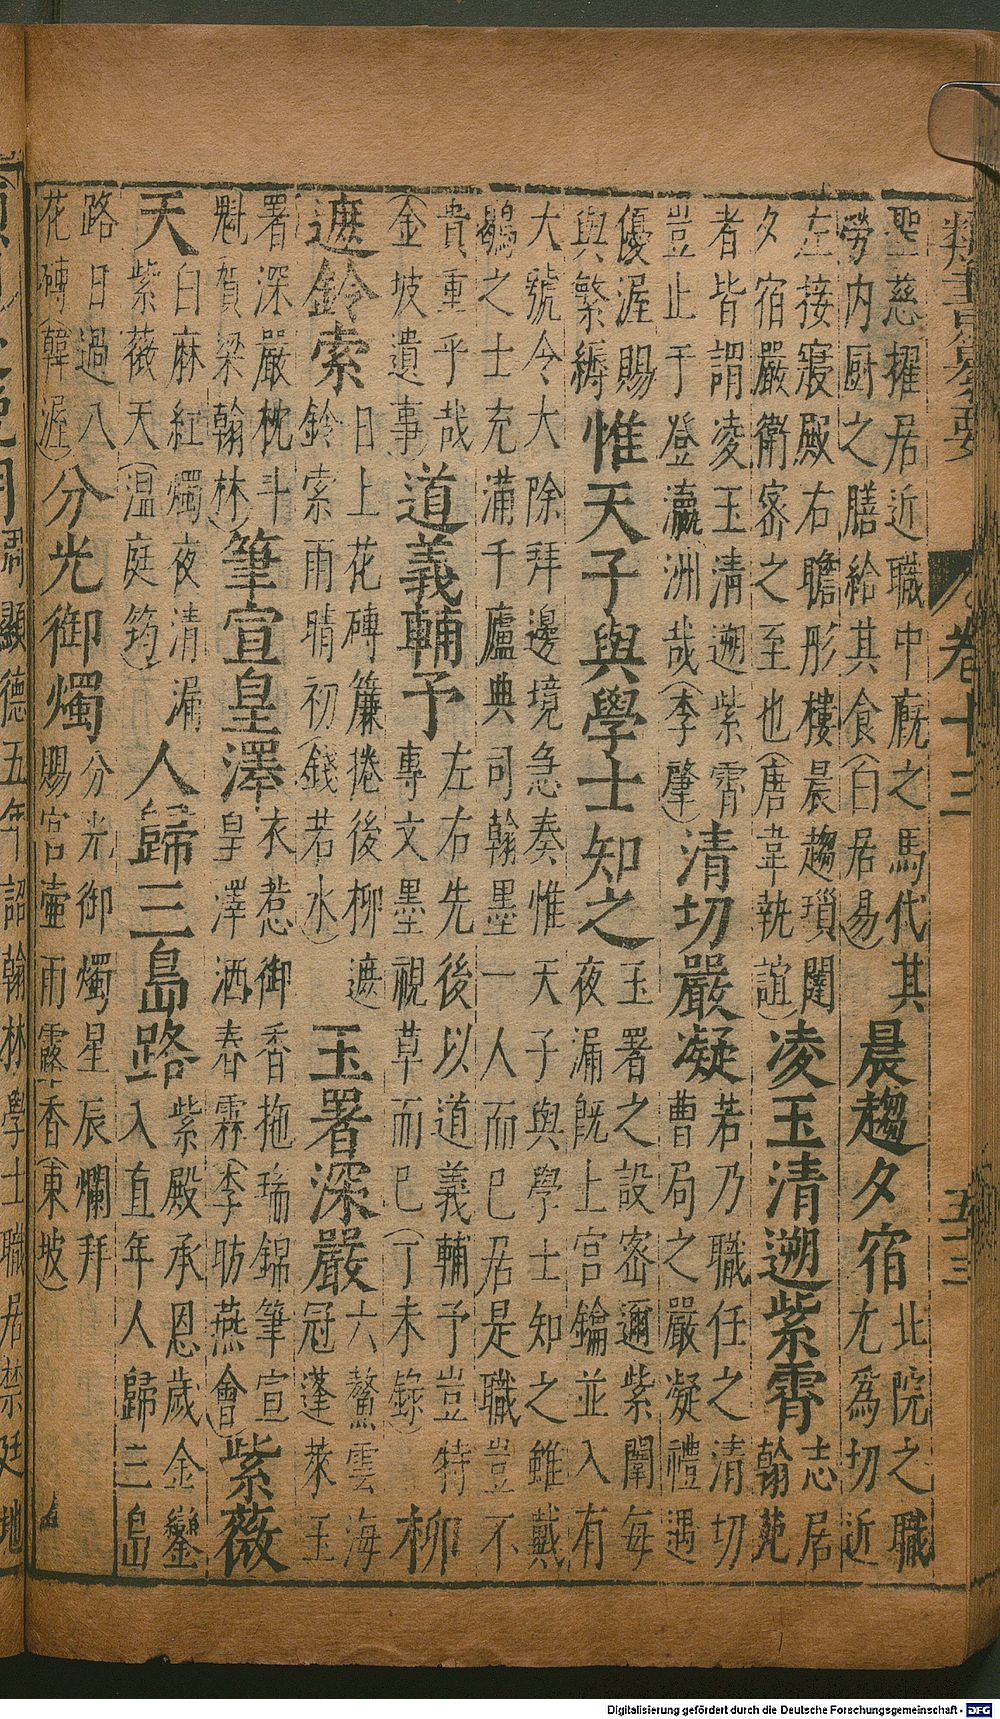 卷十三
聖慈擢居近職中廐之馬代其
勞內厨之膳給其食（白居易）
晨趨夕宿
北院之職
尤爲切近
左接寢殿右瞻彤樓晨趨瑣闥
夕宿嚴衛宻之至也（唐韋執誼）
凌玉清遡紫霄
志居
翰苑
者皆謂凌玉清遡紫霄
豈止于登瀛洲哉（李肇）
清切嚴凝
若乃職任之清切
曹局之嚴凝禮遇
優渥賜
與繁縟
惟天子與學士知之
玉署之設宻邇紫闈每
夜漏既上宮鑰並入有
大號令大除拜邊境急奏惟天子與學士知之雖戴
鶡之士充蒲千廬典司翰墨一人而已居是職豈不
貴重乎哉
（金坡遺事）
道義輔予
左右先後以道義輔予豈特
專文墨視草而已（丁未錄）
柳
遮鈴索
日上花磚簾捲後柳遮
鈴索雨晴初（錢若水）
玉署深嚴
六鰲雲海
冠蓬萊玉
署深嚴枕斗
魁（賀梁翰林）
筆宣皇澤
衣惹御香拖瑞錦筆宣
皇澤洒春霖（李昉燕會）
紫薇
天
白麻紅燭夜清漏
紫薇天（温庭筠）
人歸三島路
紫殿承恩歲金鑾
入直年人歸三島
路日過八
花磚（韓渥）
分光御燭
分光御燭星辰爛拜
賜宮壷雨露香（東坡）
顯德五年詔翰林學士職居禁廷地
Digitalisierung gefördert durch die Deutsche Forschungsgemeinschaft - DFG